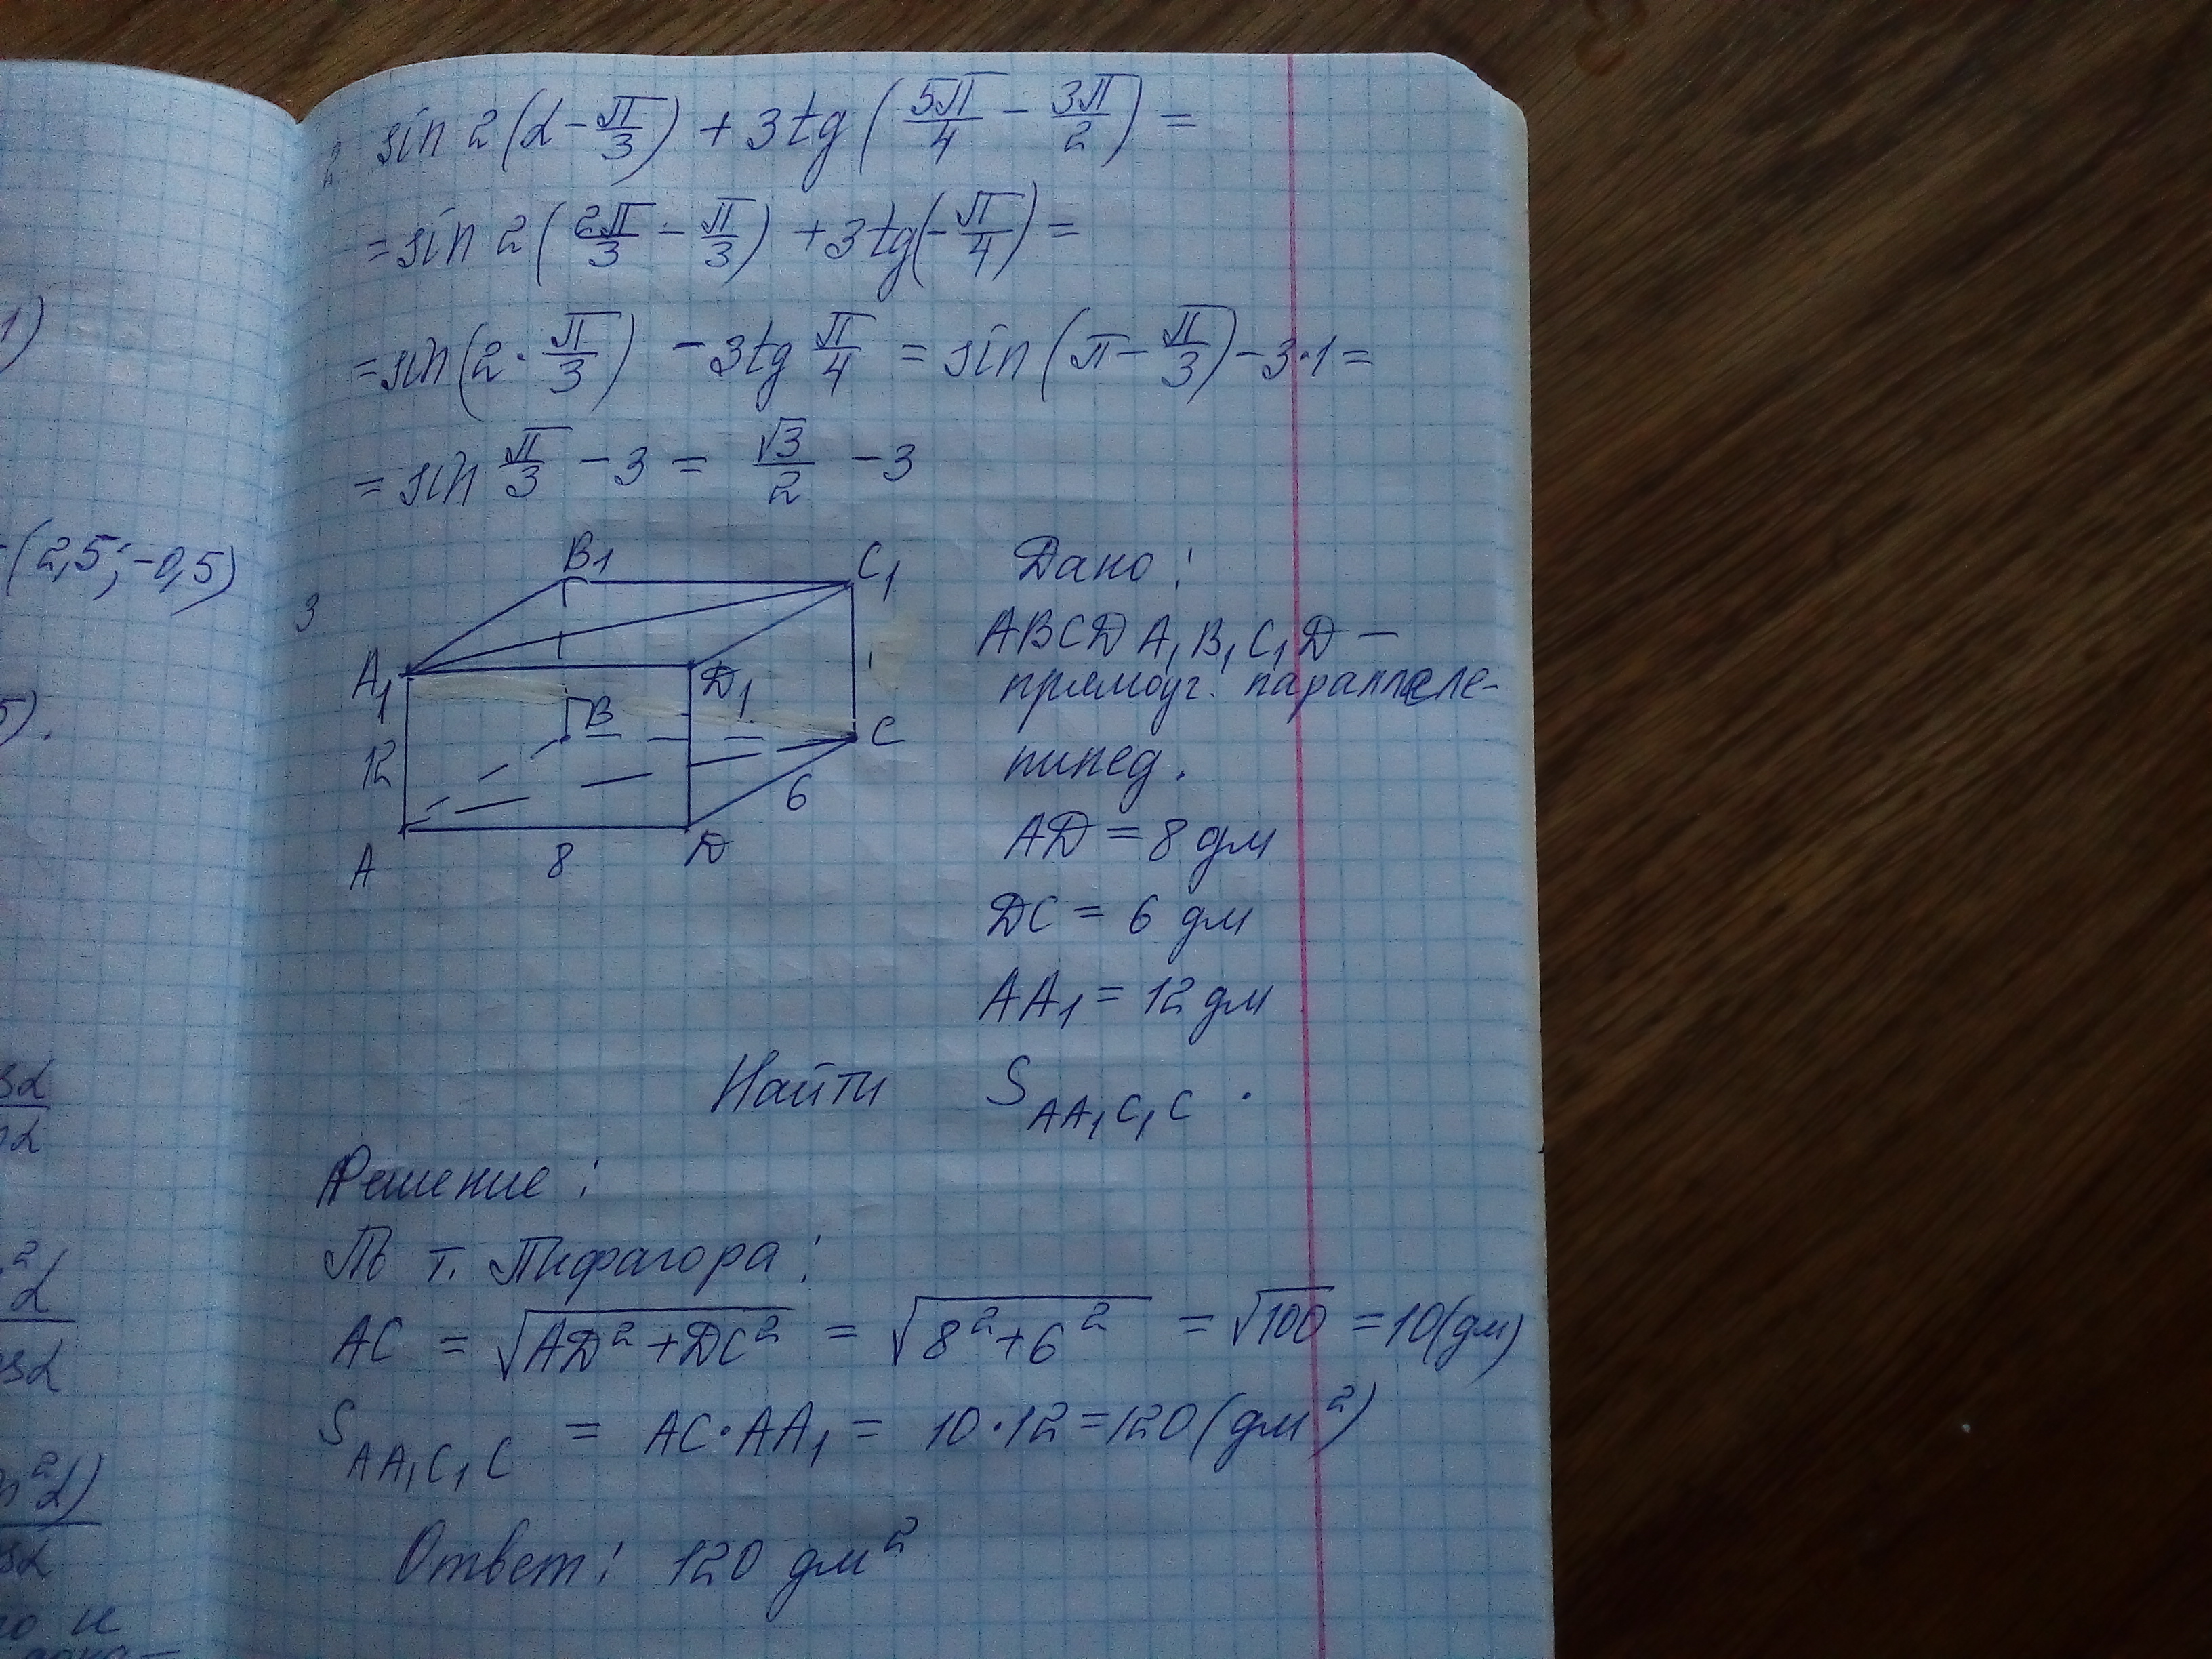 1)
-(2,5; -0,5)
5).
sα
sα
²α
sα
²α)
sα
ю и
2 sin 2(α - π/3) + 3tg(5π/4 - 3π/2) =
= sin 2(2π/3 - π/3) + 3tg(-π/4) =
= sin(2·π/3) - 3tg π/4 = sin(π - π/3) - 3·1 =
= sin π/3 - 3 = √3/2 - 3
3
B1 C1
A1 D1
B C
12
6
A 8 D
Дано:
ABCDA₁B₁C₁D —
прямоуг. параллеле-
пипед.
AD = 8 дм
DC = 6 дм
AA₁ = 12 дм
Найти S AA₁C₁C.
Решение:
По т. Пифагора:
AC = √(AD² + DC²) = √(8² + 6²) = √100 = 10(дм)
S AA₁C₁C = AC·AA₁ = 10·12 = 120(дм²)
Ответ: 120 дм²